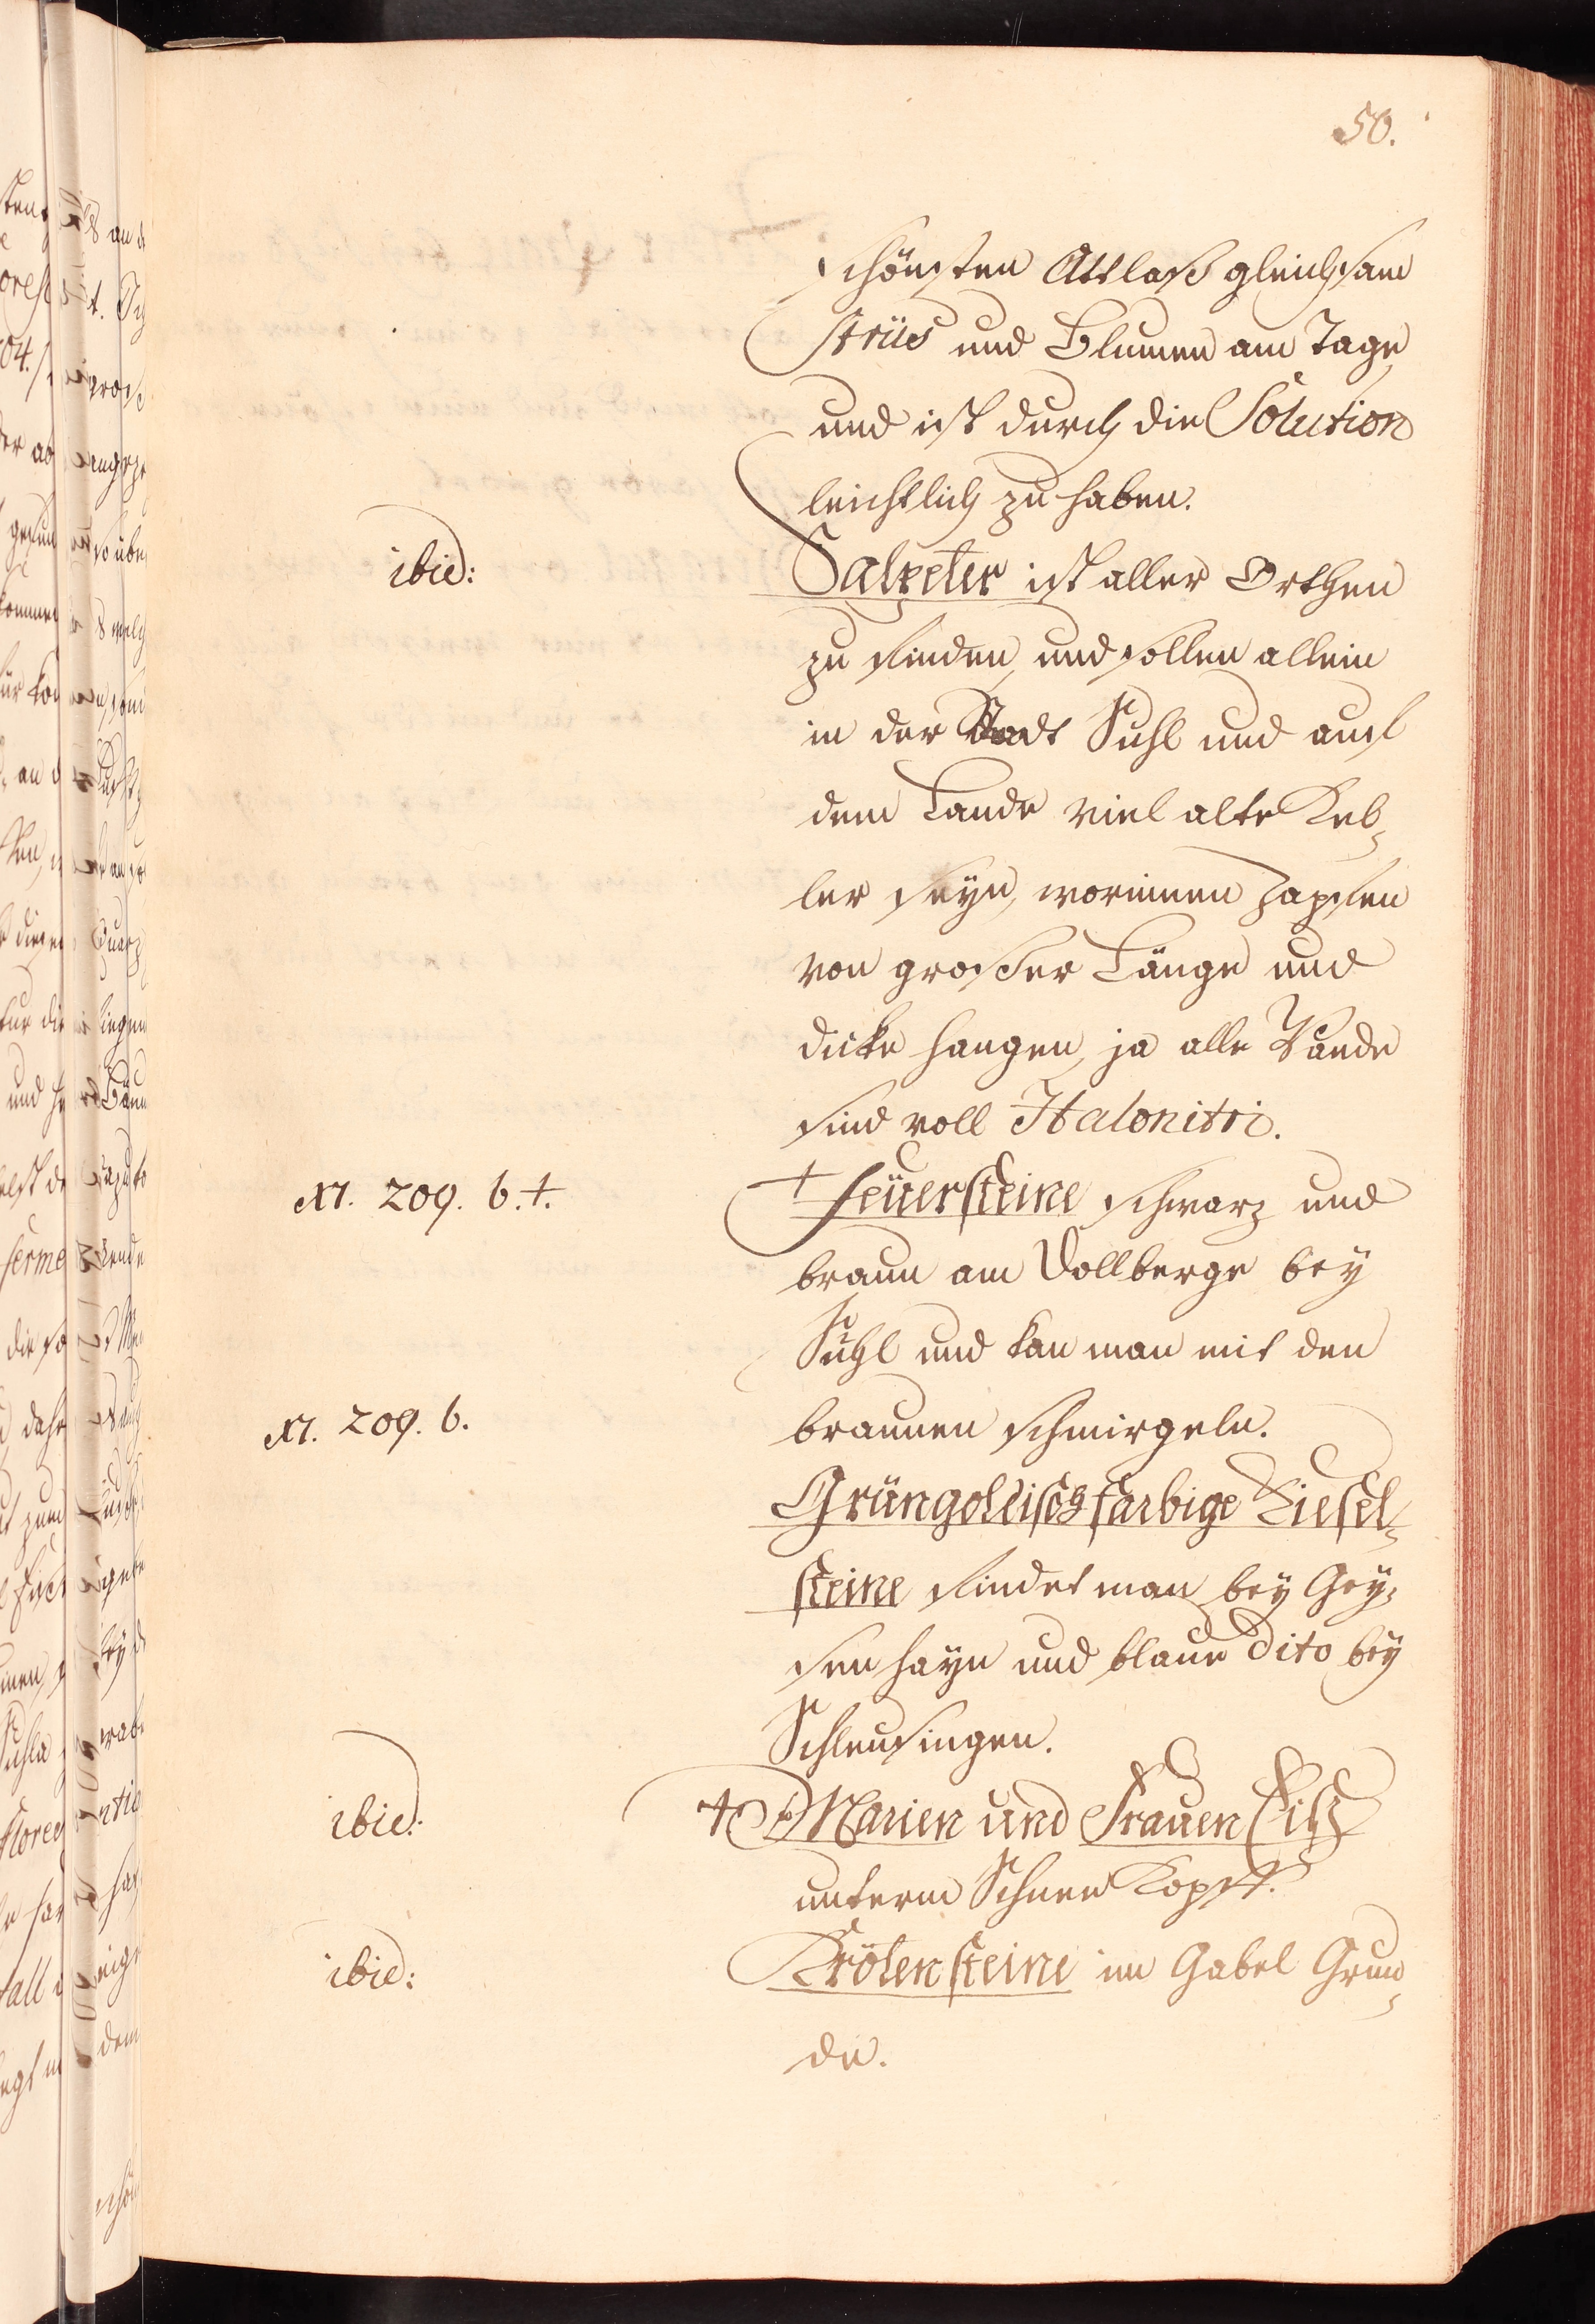 50.
schönsten Attlaß gleichsam
Strüs und Blumen am Tage
und ist durch die Solution
leichtlich zu haben.
ibid: Salpeter ist aller Orthen
zu finden, und sollen allein
in der Stadt Suhl und auf
dem Lande viel alte Kel-
ler seyn, worinnen Zapffen
von großer Länge und
dicke hangen, ja alle Wände
sind voll Halonitri.
M. 209. b. +. + Feüersteine schwarz und
braun am Dollberge bey
Suhl und kan man mit den
M. 209. b. braunen schmirgeln.
Grüngoldisch farbige Kiesel-
steine findet man bey Gey-
sen hayn und blaue dito bey
Schleusingen.
ibid: + Marien und Frauen Eiß
unterm Schnee Kopff.
ibid: Kröten steine im Gabel Grun-
de.